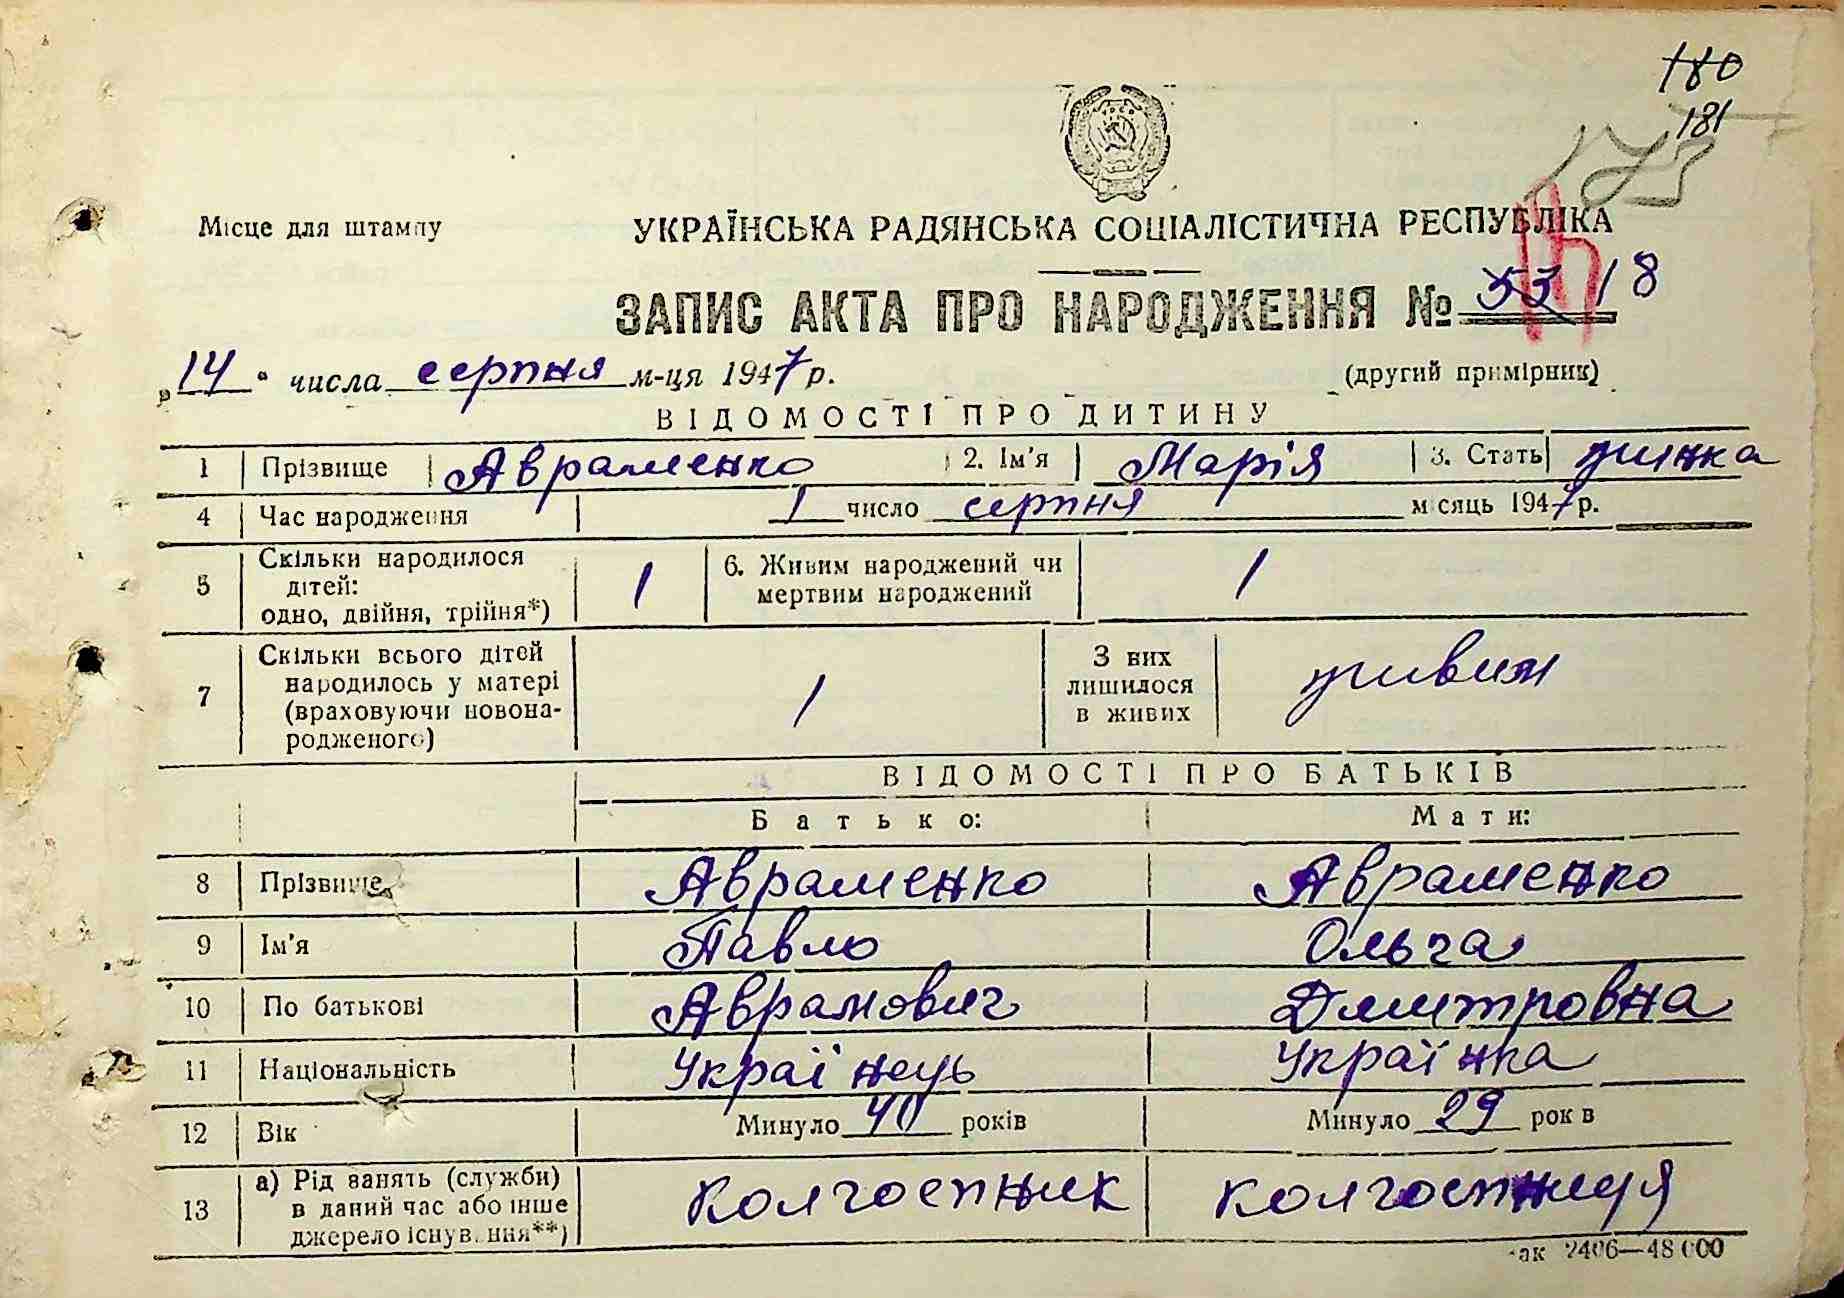 180
181
173
Місце для штампу
УКРАЇНСЬКА РАДЯНСЬКА СОЦІАЛІСТИЧНА РЕСПУБЛІКА
ЗАПИС АКТА ПРО НАРОДЖЕННЯ № 53 18
„14“ числа серпня м-ця 1947 р. (другий примірник)
ВІДОМОСТІ ПРО ДИТИНУ
1 Прізвище Авраменко 2. Ім'я Марія 3. Стать жинка
4 Час народження 1 число серпня місяць 1947 р.
5 Скільки народилося дітей: одно, двійня, трійня*) 1 6. Живим народжений чи мертвим народжений 1
7 Скільки всього дітей народилось у матері (враховуючи новонародженого) 1 З них лишилося в живих живим
ВІДОМОСТІ ПРО БАТЬКІВ
Батько: Мати:
8 Прізвище Авраменко Авраменко
9 Ім'я Павло Ольга
10 По батькові Аврамович Дмитровна
11 Національність Українець Українка
12 Вік Минуло 40 років Минуло 29 років
13 а) Рід занять (служби) в даний час або інше джерело існування**) Колгоспник колгоспниця
ак 2406—48 000